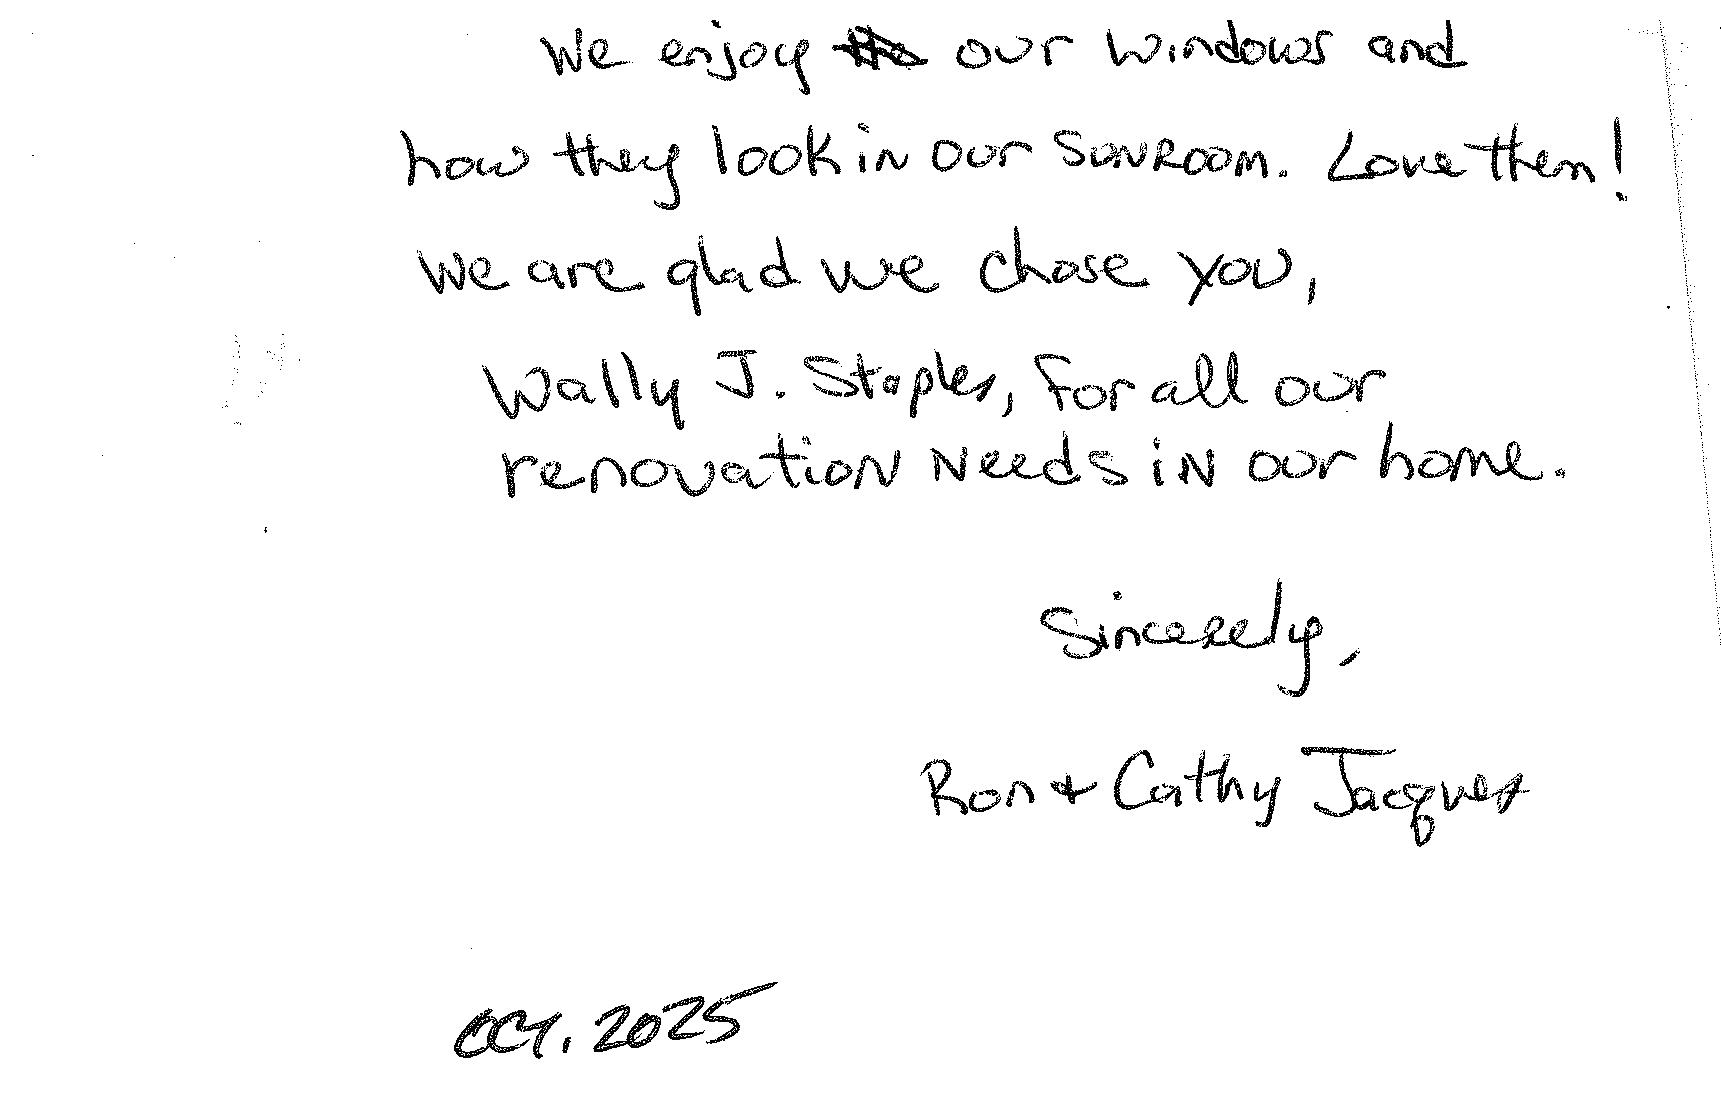 We enjoy our windows and
how they look in our SUNROOM. Love them!
We are glad we chose you,
Wally J. Staples, for all our
renovation Needs iN our home.
Sincerely,
Ron & Cathy Jacques
OCT. 2025